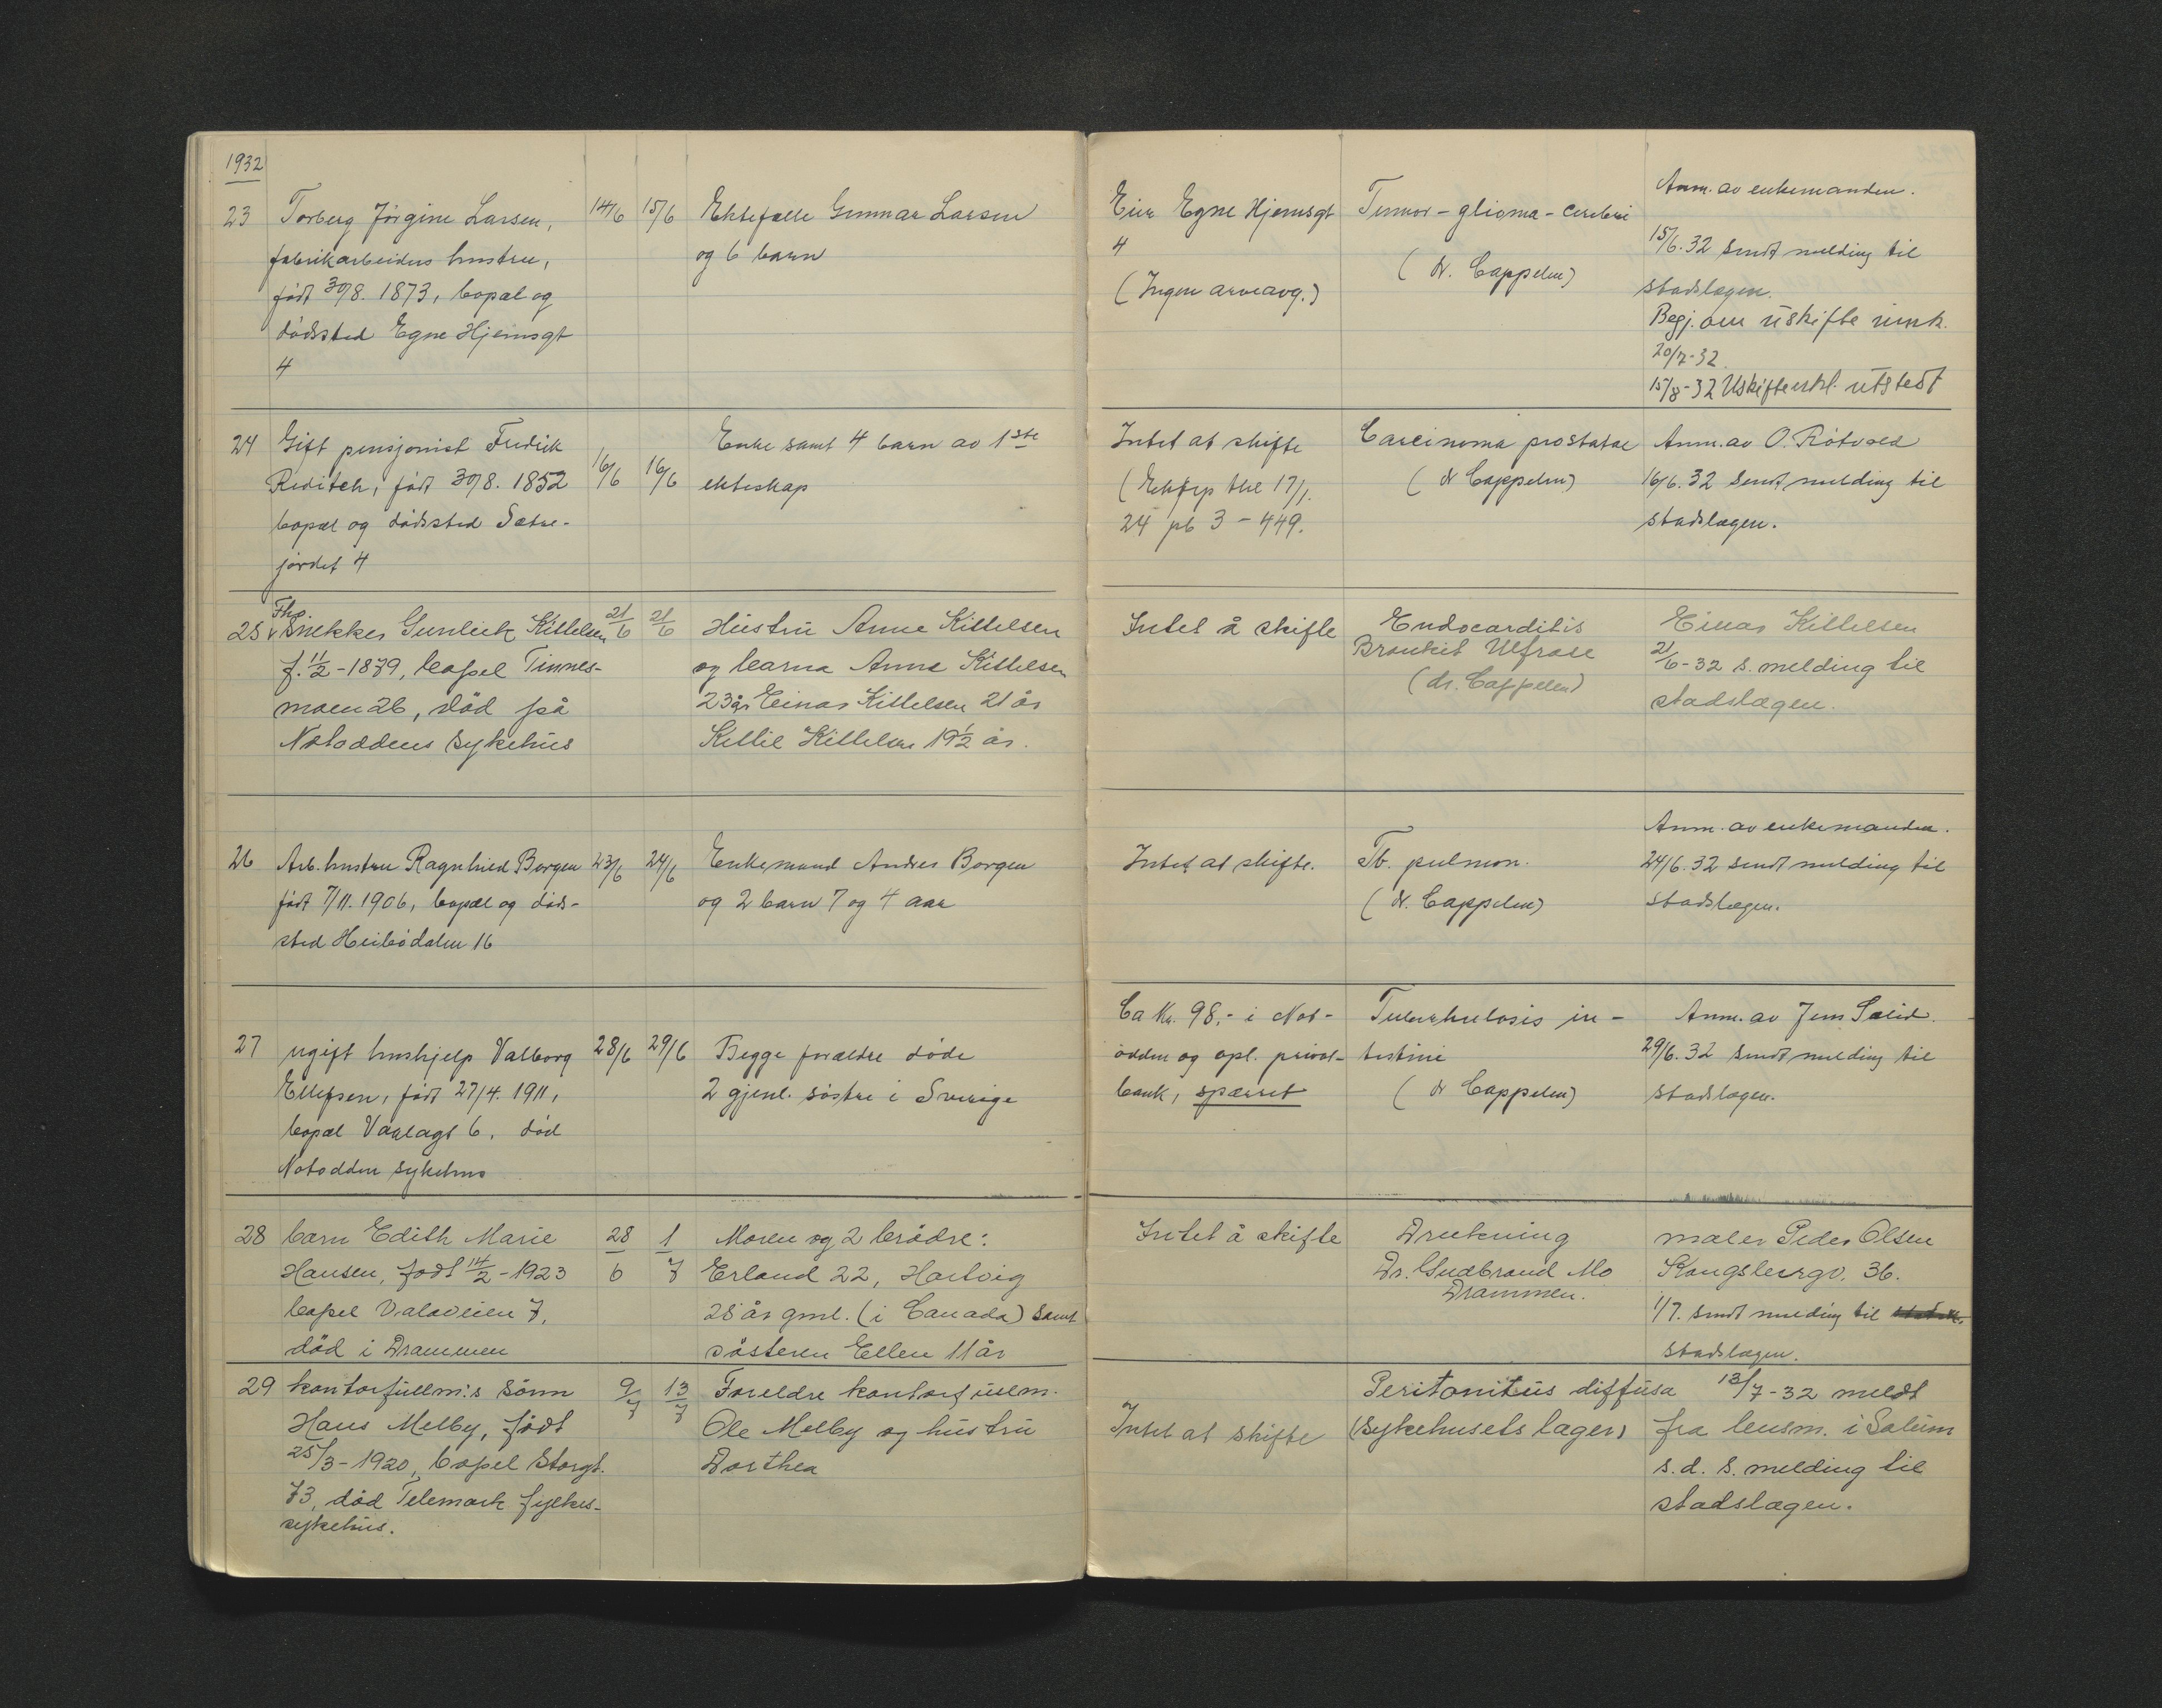 1932
23 Torberg Jörgine Larsen, 14/6 15/6 Ektefælle Gunnar Larsen
fabrikarbeiders hustru, og 6 barn
født 30/8. 1873, bopæl og
dödssted Egne Hjemsgt
4
Eier Egne Hjemsgt Tumor - glioma - cerebri Anm. av enkemanden.
4 (dr. Cappelen) 15/6. 32 sendt melding til
(Ingen arveavg.) stadslægen.
Begj. om uskifte innk.
20/7-32.
15/8-32 Uskifteerkl. utstedt
24 Gift pensjonist Fredrik 16/6 16/6 Enke samt 4 barn av 1ste
Reditch, født 30/8. 1852 ekteskap
bopæl og dödssted Sætre-
jordet 4
Intet at skifte Carcinoma prostatae Anm. av O. Rötvold
(Ektep thl 17/1. (dr Cappelen) 16/6. 32 sendt melding til
24 pb 3 - 449. stadslægen.
25 Fhv. Snekker Gunleik Kittelsen 21/6 21/6 Hustru Anne Kittelsen
f. 11/2-1879, bopel Tinnes- og barna Anne Kittelsen
moen 26, död på 23år Einar Kittelsen 21 år
Notoddens sykehus Kittil Kittelsen 19½ år.
Intet å skifte Endocarditis Einar Kittelsen
Bronkit 21/6-32 s. melding til
(dr. Cappelen) stadslægen.
26 Arb. hustru Ragnhild Borgen 23/6 24/6 Enkemand Andres Borgen
født 7/11. 1906, bopæl og döds- og 2 barn 7 og 4 aar
sted Heibödalen 16
Intet at skifte. Tb. pulmon. Anm. av enkemanden.
(dr. Cappelen) 24/6. 32 sendt melding til
stadslægen.
27 ugift hushjelp Valborg 28/6 29/6 Begge forældre döde
Ellefsen, født 27/4. 1911, 2 gjenl. söstre i Sverige
bopæl Vaalagt 6. död
Notodden sykehus
Ca Kr. 98,- i Not- Tuberkulosis in- Anm. av Jens
odden og opl. privat- testini 29/6. 32 sendt melding til
bank, spærret (dr Cappelen) stadslægen.
28 barn Edith Marie 28/6 1/7 Moren og 2 brödre:
Hansen, född 14/2-1923 Erland 22, Hartvig
bopel Valaveien 7, 28 år gml. (i Canada) samt
död i Drammen södsteren Ellen 11 år
Intet å skifte Drukning maler Peder Olsen
Dr. Gudbrand Mo Kongsbergv. 36.
Drammen. 1/7. sendt melding til
stadslægen.
29 kontorfullm.s sönn 9/7 13/7 Foreldre kontorfullm.
Hans Melby, födt Ole Melby og hustru
25/3-1920, bopel Storgt. Dorthea
73, död Telemark fylkes-
sykehus.
Intet at skifte Peritonitus diffusa 13/7-32 meldt
(Sykehusets læger) fra lensm. i Solum
s.d. s. melding til
stadslægen.